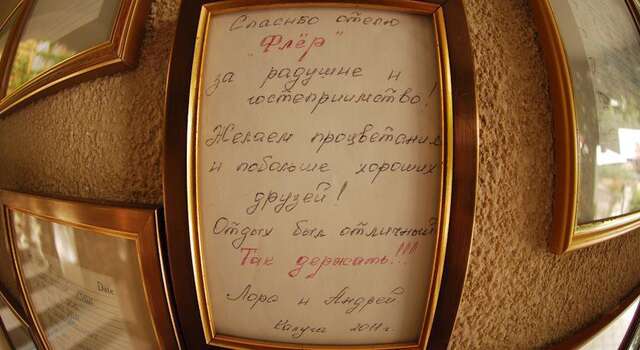 Спасибо отелю
"Флёр"
за радушие и
гостеприимство!
Желаем процветания
и побольше хороших
друзей!
Отдых был отличный
Так держать!!!
Лора и Андрей
Калуга 2011г.
Date